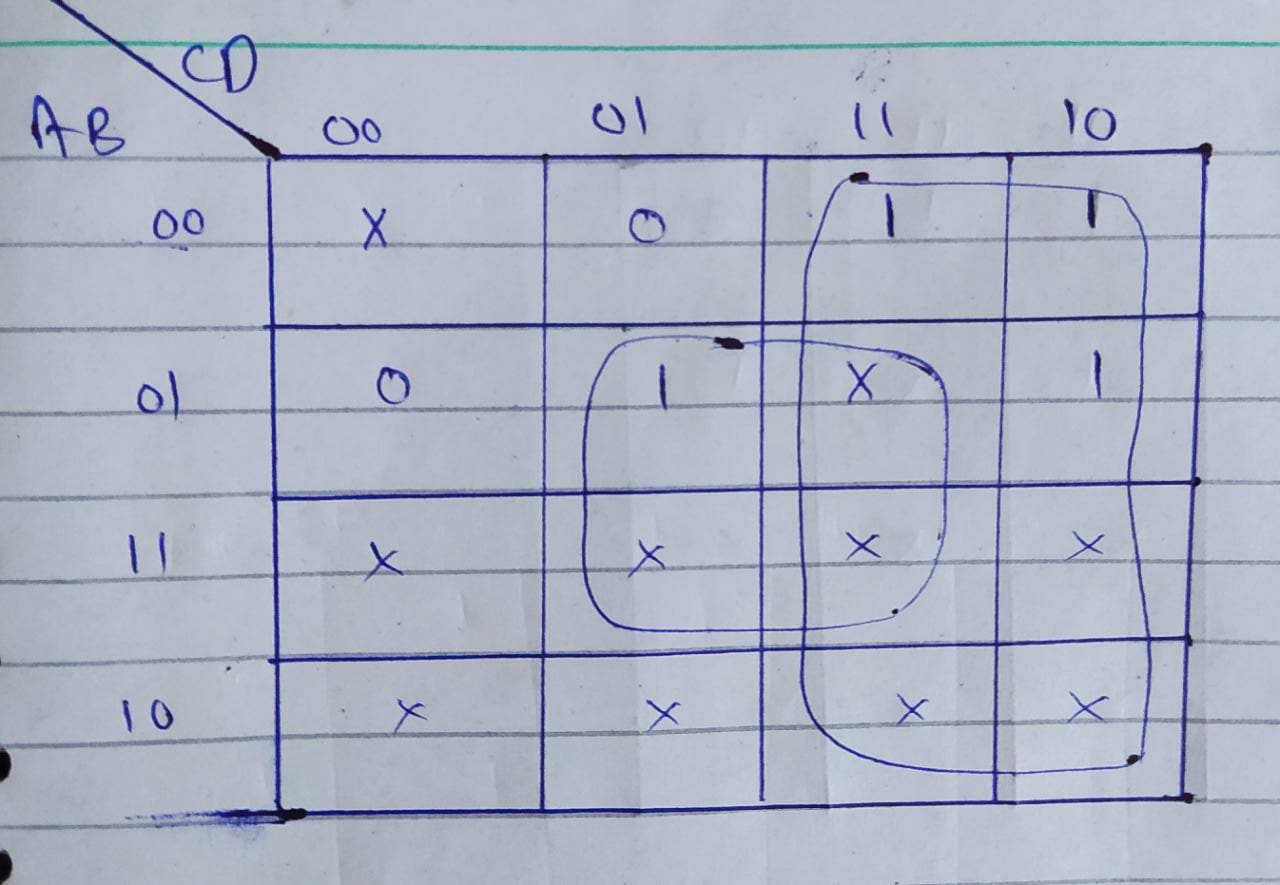 CD
AB 00 01 11 10
00 X 0 1 1
01 0 1 X 1
11 X X X X
10 X X X X